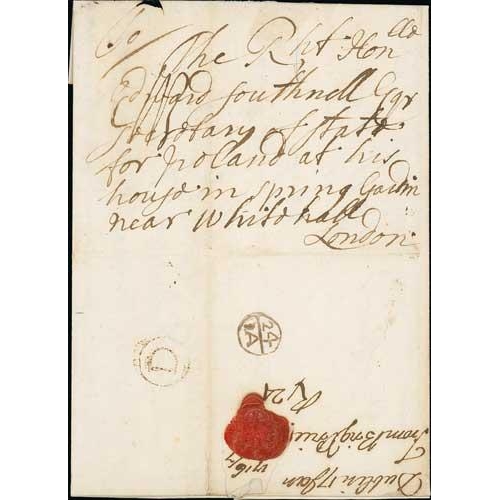 To/
The Rht Honlle
Edward Southwell Esqr
Secretary of State
for Ireland at his
house in Spring Gardin
near Whitehall
London
24
IA
D
Dublin 17 Jan
R 24